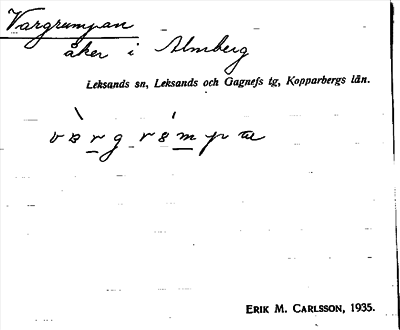 Vargrumpan
åker i Almberg
Leksands sn, Leksands och Gagnefs tg, Kopparbergs län.
ERIK M. CARLSSON, 1935.